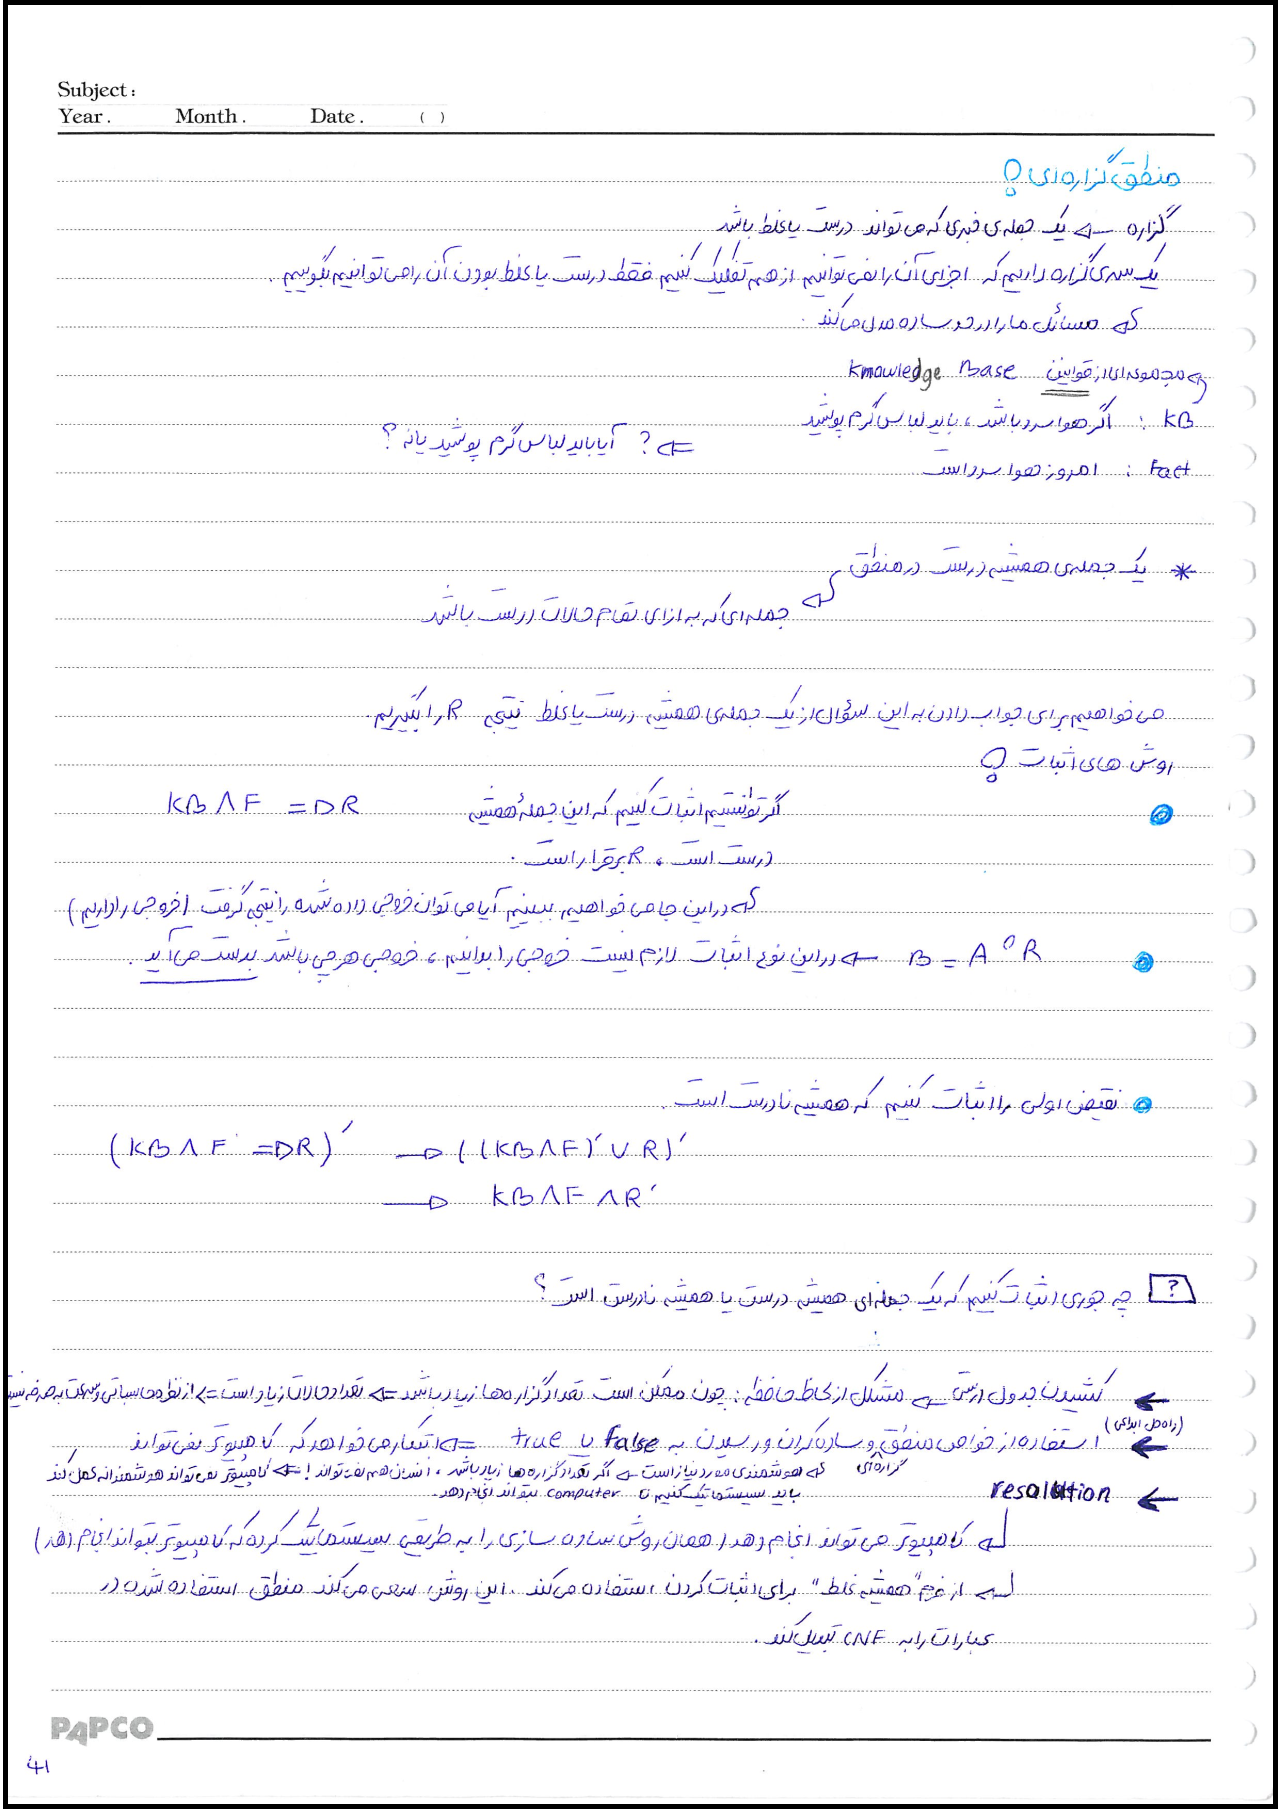 Subject:
Year. Month. Date. ( )
منطق گزاره‌ای:
گزاره ⇐ یک جمله‌ی خبری که می‌تواند درست یا غلط باشد
یک سری گزاره داریم که اجزای آن را نمی‌توانیم از هم تفکیک کنیم فقط درست یا غلط بودن آن را می‌توانیم بگوییم.
که مسائل ما را در حد ساده مدل می‌کند.
مجموعه‌ای از قوانین Knowledge Base
KB : اگر هوا سرد باشد، باید لباس گرم پوشید
⇐ ? آیا باید لباس گرم پوشید یا نه؟
Fact : امروز هوا سرد است
* یک جمله‌ی همیشه درست در منطق
جمله‌ای که به ازای تمام حالات درست باشد
می‌خواهیم برای جواب دادن به این سؤال از یک جمله‌ی همیشه درست یا غلط نتیجه R را بگیریم.
روش های اثبات:
اگر توانستیم اثبات کنیم که این جملهٔ همیشه KB ∧ F ⇒ R
درست است، R برقرار است.
در این جا می‌خواهیم ببینیم آیا می‌توان خروجی داده شده را نتیجه گرفت (خروجی را داریم)
B = A ° R ← در این نوع اثبات لازم نیست خروجی را بدانیم، خروجی هر چی باشد بدست می‌آید.
نقیض اولی را اثبات کنیم که همیشه نادرست است.
(KB ∧ F ⇒ R)′ → ((KB ∧ F)′ ∨ R)′
→ KB ∧ F ∧ R′
? چه جوری اثبات کنیم که یک جمله‌ای همیشه درست یا همیشه نادرست است؟
← کشیدن جدول ارزش ⇐ مشکل از لحاظ حافظه: چون ممکن است تعداد گزاره‌ها زیاد باشد ⇐ تعداد حالات زیاد است ⇐ از نظر محاسباتی و سرعت به صرفه نیست
(راه‌حل ابتدایی)
← استفاده از خواص منطق گزاره‌ای و ساده کردن و رسیدن به false یا true ⇐ ابتکار می‌خواهد که کامپیوتر نمی‌تواند
که هوشمندی مورد نیاز است ⇐ اگر تعداد گزاره‌ها زیاد باشد، انسان هم نمی‌تواند! ⇐ کامپیوتر نمی‌تواند هوشمندانه عمل کند
باید سیستماتیک کنیم تا computer بتواند انجام دهد.
← resolution
کامپیوتر می‌تواند انجام دهد (همان روش ساده سازی را به طریقی سیستماتیک کرده که کامپیوتر بتواند انجام دهد)
از فرم "همیشه غلط" برای اثبات کردن استفاده می‌کند. این روش سعی می‌کند منطق استفاده شده در
عبارات را به CNF تبدیل کند.
PAPCO
41